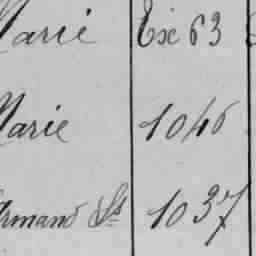 Marie Ex 63
Marie 1046
Armand St 1037